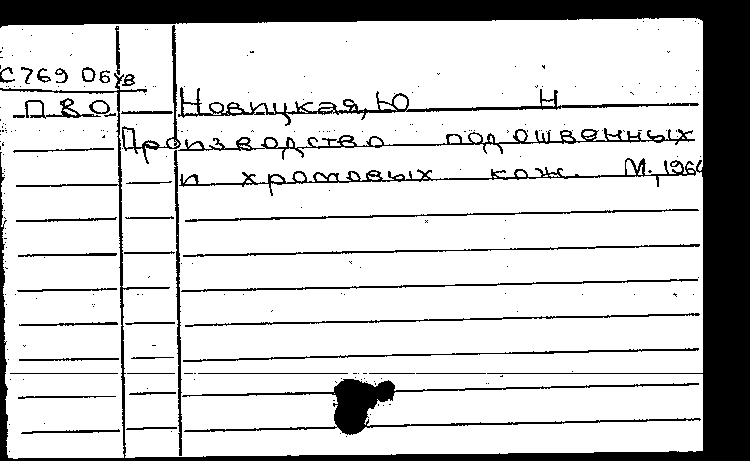 С769 Обув
ПВО Новицкая, Ю Н
Производство подошвенных
и хромовых кож. М., 1964